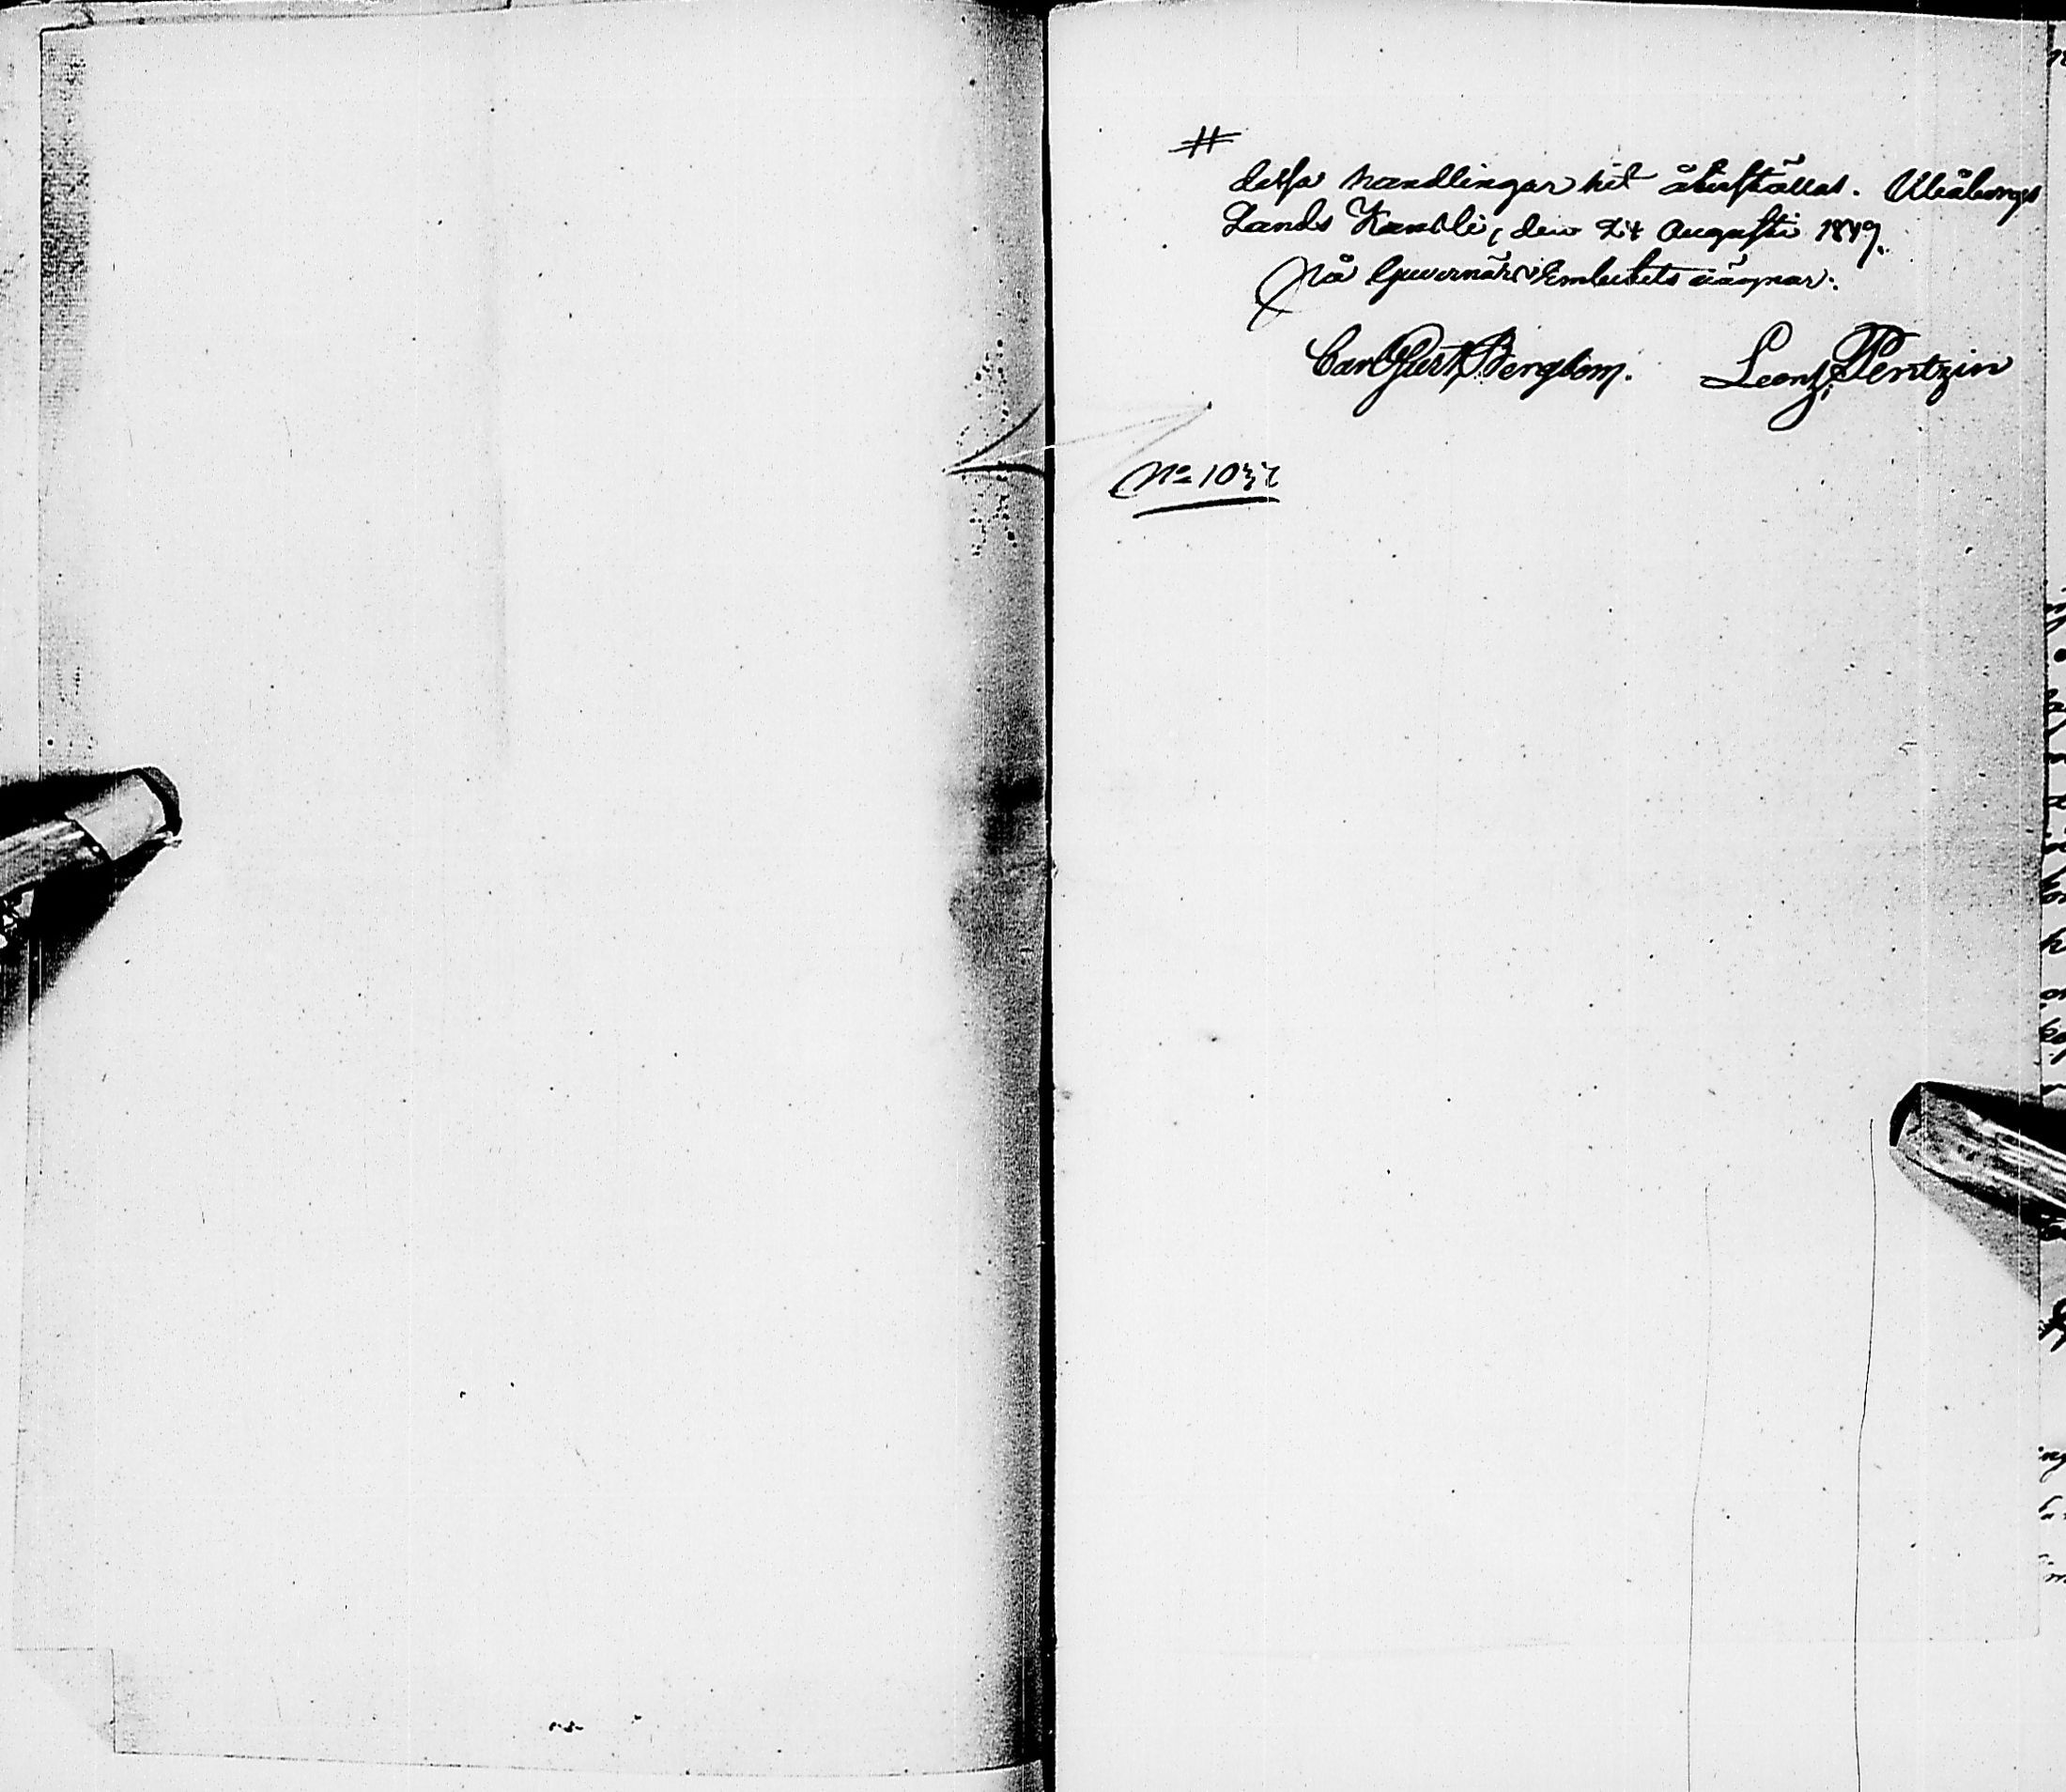 #
dessa handlingar hit återställas. Uleåborgs
Lands Kansli, den 24 Augusti 1849.
På Guvernörs Embetets vägnar:
Carl Gust. Bergbom. Leonh. Pentzin
No 1037